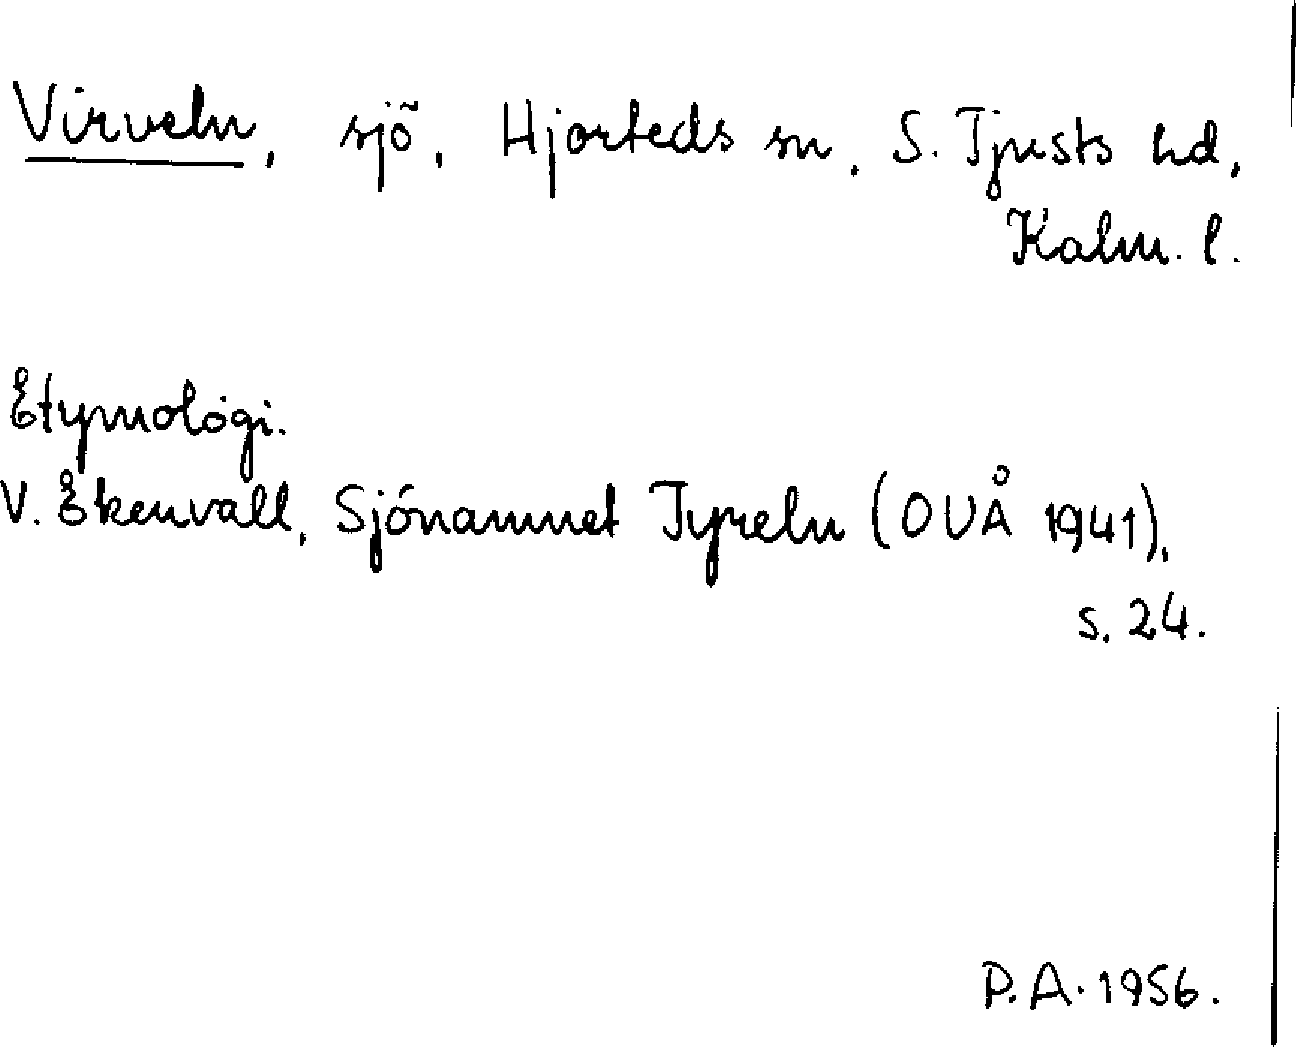 Virveln, sjö, Hjorteds sn, S. Tjusts hd,
Kalm. l.
Etymologi.
V. Ekenvall, Sjönamnet Tyreln (OUÅ 1941),
s. 24.
P.A. 1956.